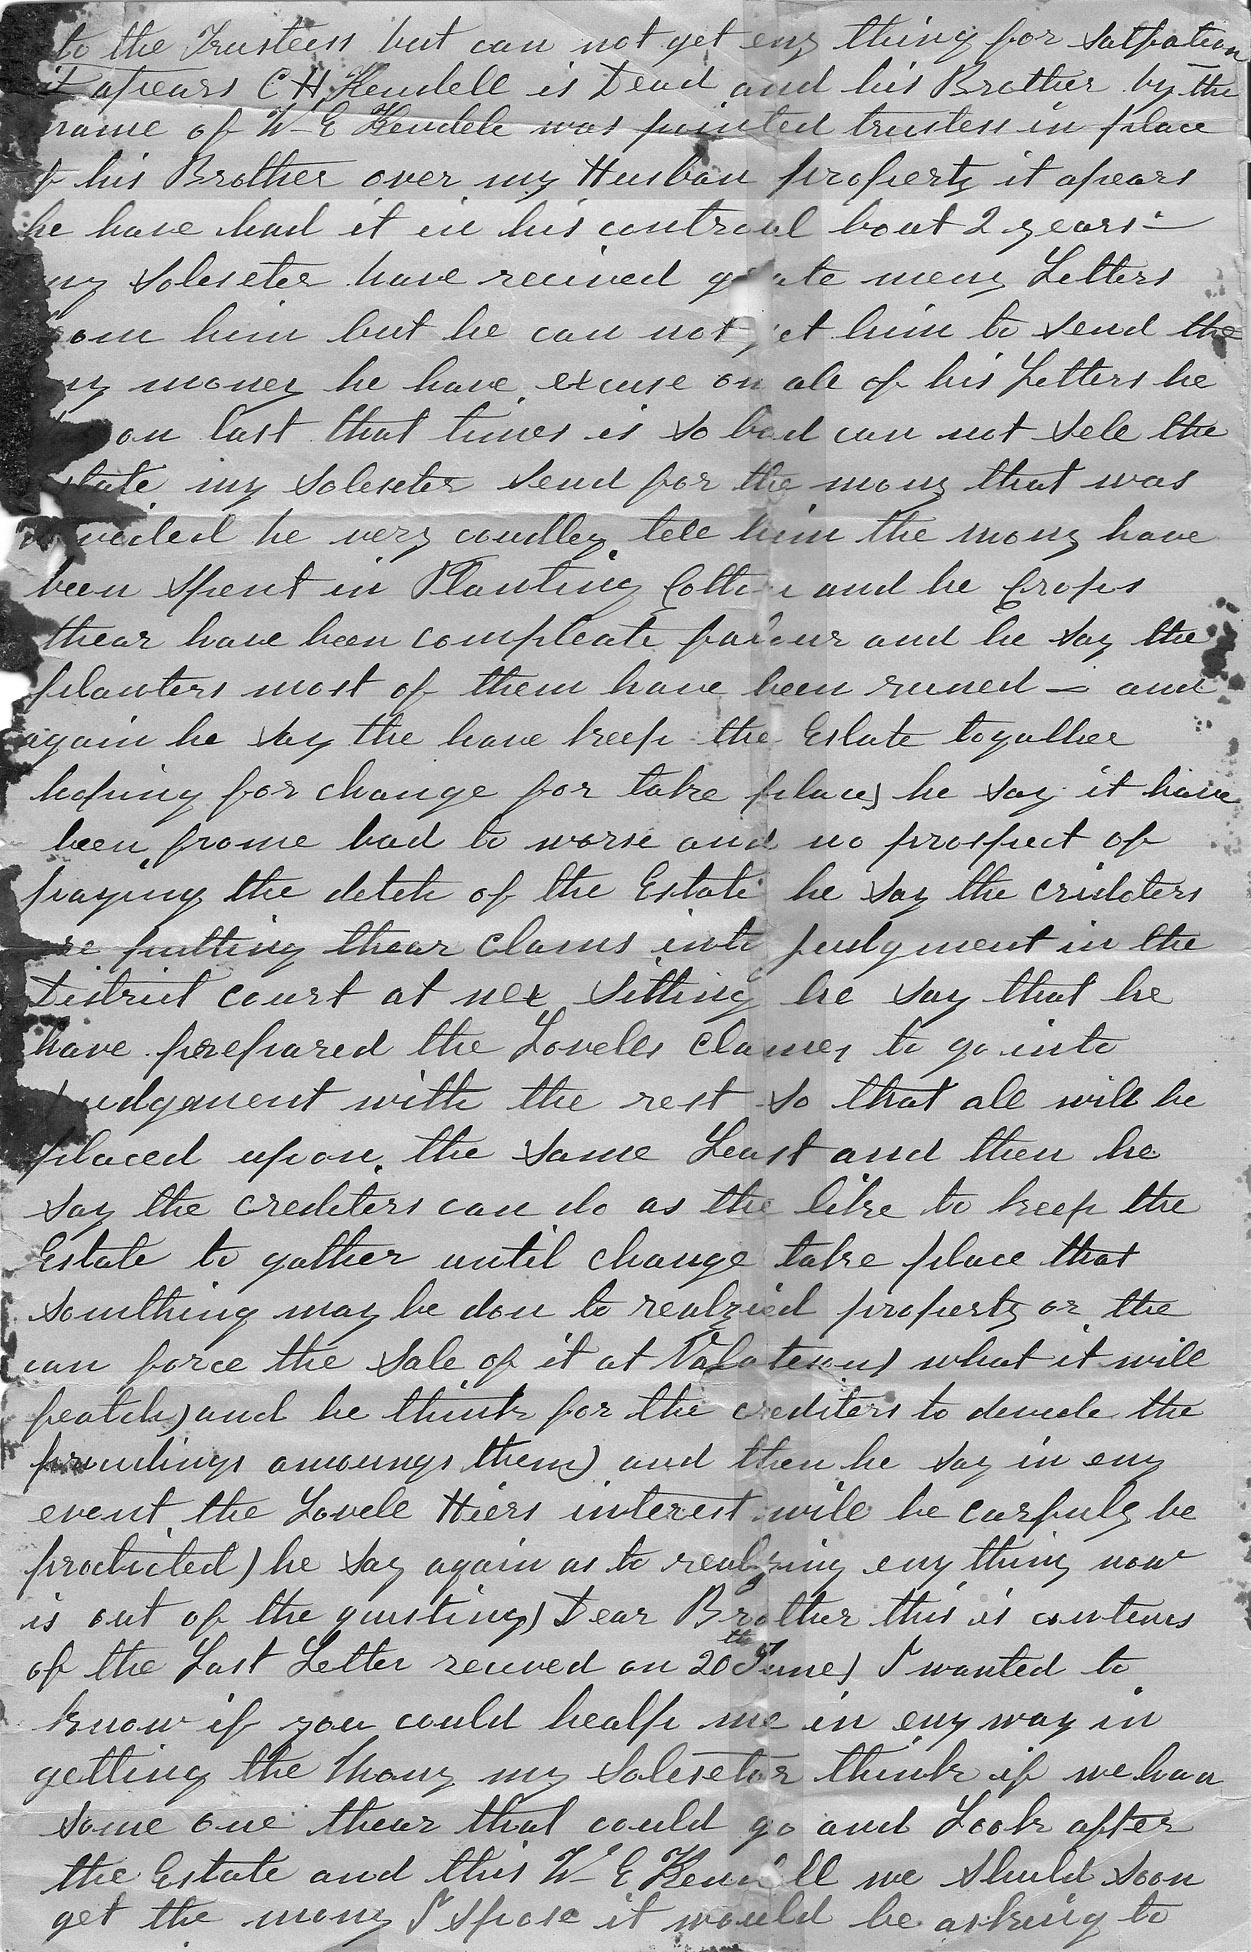 to the Trustess but can not get eny thing for Satfation
it apears C H Kendell is Dead and his Brother by the
name of W-E Kendele was pointed trustess in place
of his Brother over my Husban property it apears
he have had it in his controul bout 2 years-
my Soleseter have recived quite meny Letters
from him but he can not get him to send the
eny money he have excuse on all of his Letters he
on last that times is so bad can not sele the
Estate my Soleseter Send for the mony that was
he very coudley tele him the mony have
been Spent in Planting Cotton and he Crops
thear have been compleate faleur and he say the
planters most of them have been runed - and
again he say the have keep the Estate togather
hoping for change for take place) he say it have
been frome bad to worse and no prospect of
paying the detele of the Estate he say the criditers
are putting thear Clams into judgment in the
District court at nex Sitting he say that he
have prepared the Lovells Clames to go into
Judgment with the rest so that all will be
placed upon the Same Least and then he
say the crediters can do as the like to keep the
Estate to gather until change take place that
Somthing may be don to realzied property or the
can force the Sale of it at what it will
featch) and he think for the crediters to devide the
amoungs them) and then he say in eny
event the Lovele Hiers interest wile be carfuly be
proticted) he say again as to realizing eny thing now
is out of the questing) Dear Brother this is contens
of the Last Letter recived on 20th June) I wanted to
know if you could healp me in eny way in
getting the Mony my Soleseter think if we had
some one thear that could go and Look after
the Estate and this W-E Kendell we Shuld Soon
get the mony I Spose it would be asking to